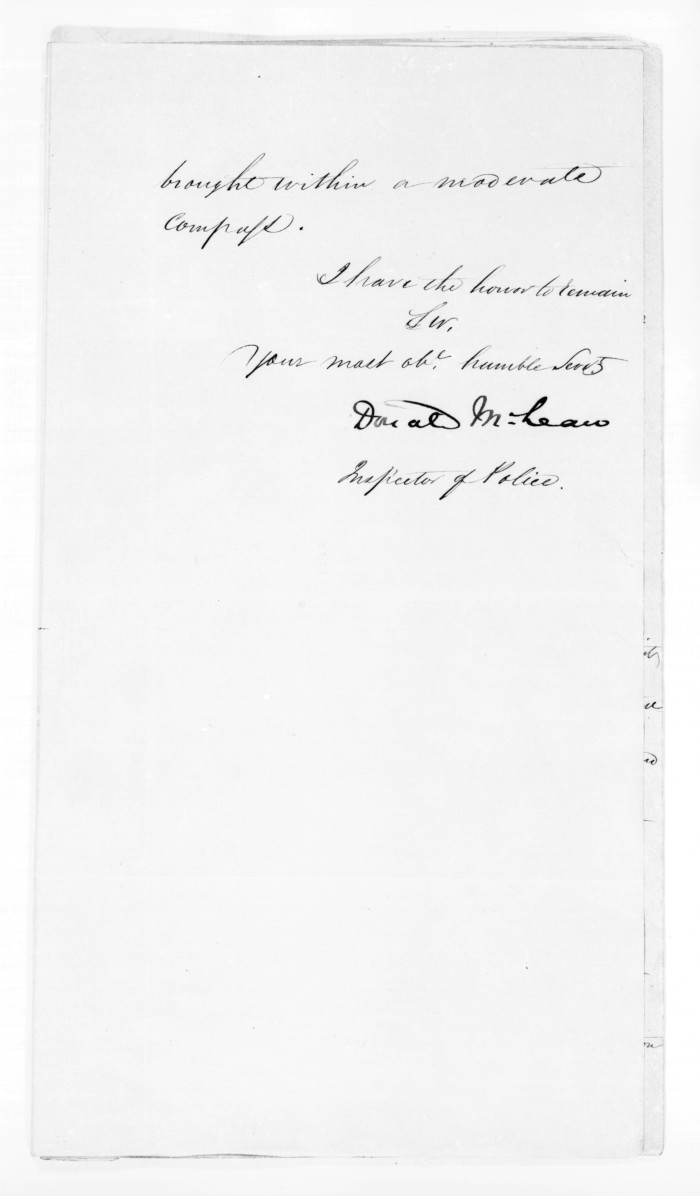 brought within a moderate
compass.
I have the honor to remain
Sir,
Your most obt. humble Servt
Donald McLean
Inspector of Police.